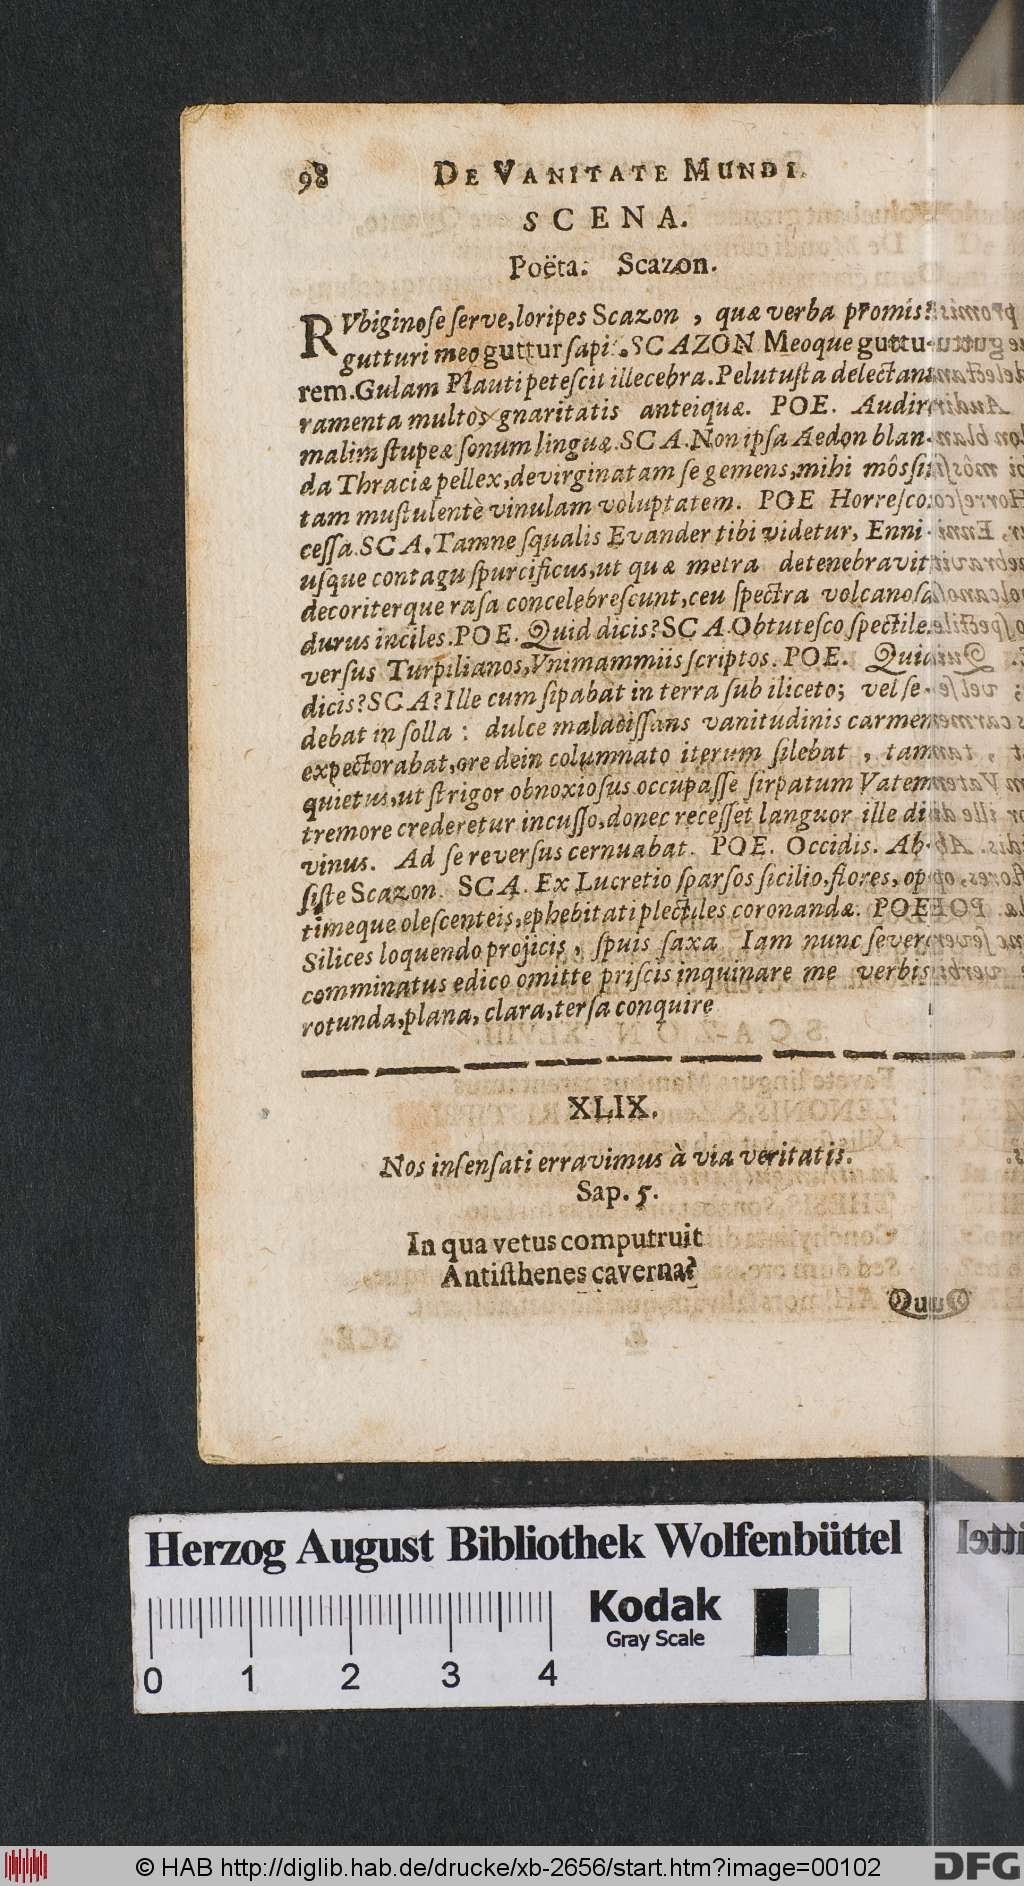 98 DE VANITATE MUNDI.
SCENA.
Poëta. Scazon.
RVbiginose serve, loripes Scazon, quæ verba promis?
gutturi meo guttur sapi. SCAZON Meoque guttu-
rem. Gulam Plauti petescit illecebra. Pelutusta delectant
ramenta multos gnaritatis anteiquæ. POE. Audire
malim stupeæ sonum linguæ. SCA. Non ipsa Aedon blan-
da Thraciæ pellex, devirginatam se gemens, mihi môssi
tam mustulentè vinulam voluptatem. POE Horresco:
cessa. SCA. Tamne squalis Evander tibi videtur, Enni-
usque contagu spurcificus, ut quæ metra detenebravit
decoriterque rasa concelebrescunt, ceu spectra volcanosa
durus inciles. POE. Quid dicis? SCA. Obtutesco spectile
versus Turpilianos, Vnimammiis scriptos. POE. Quid
dicis? SCA? Ille cum sipabat in terra sub iliceto; vel se-
debat in solla: dulce malacissans vanitudinis carmen
expectorabat, ore dein columnato iterum silebat, tam
quietus, ut strigor obnoxiosus occupasse sirpatum Vatem
tremore crederetur incusso, donec recesset languor ille di
vinus. Ad se reversus cernuabat. POE. Occidis. Ab-
siste Scazon. SCA. Ex Lucretio sparsos sicilio, flores, op-
timeque olescenteis, ephebitati plectiles coronandæ. POE
Silices loquendo projicis, spuis saxa Iam nunc severe
comminatus edico omitte priscis inquinare me verbis
rotunda, plana, clara, tersa conquire
XLIX.
Nos insensati erravimus à via veritatis.
Sap. 5.
In qua vetus computruit
Antisthenes caverna?
Herzog August Bibliothek Wolfenbüttel
Kodak
Gray Scale
0 1 2 3 4
© HAB http://diglib.hab.de/drucke/xb-2656/start.htm?image=00102
DFG